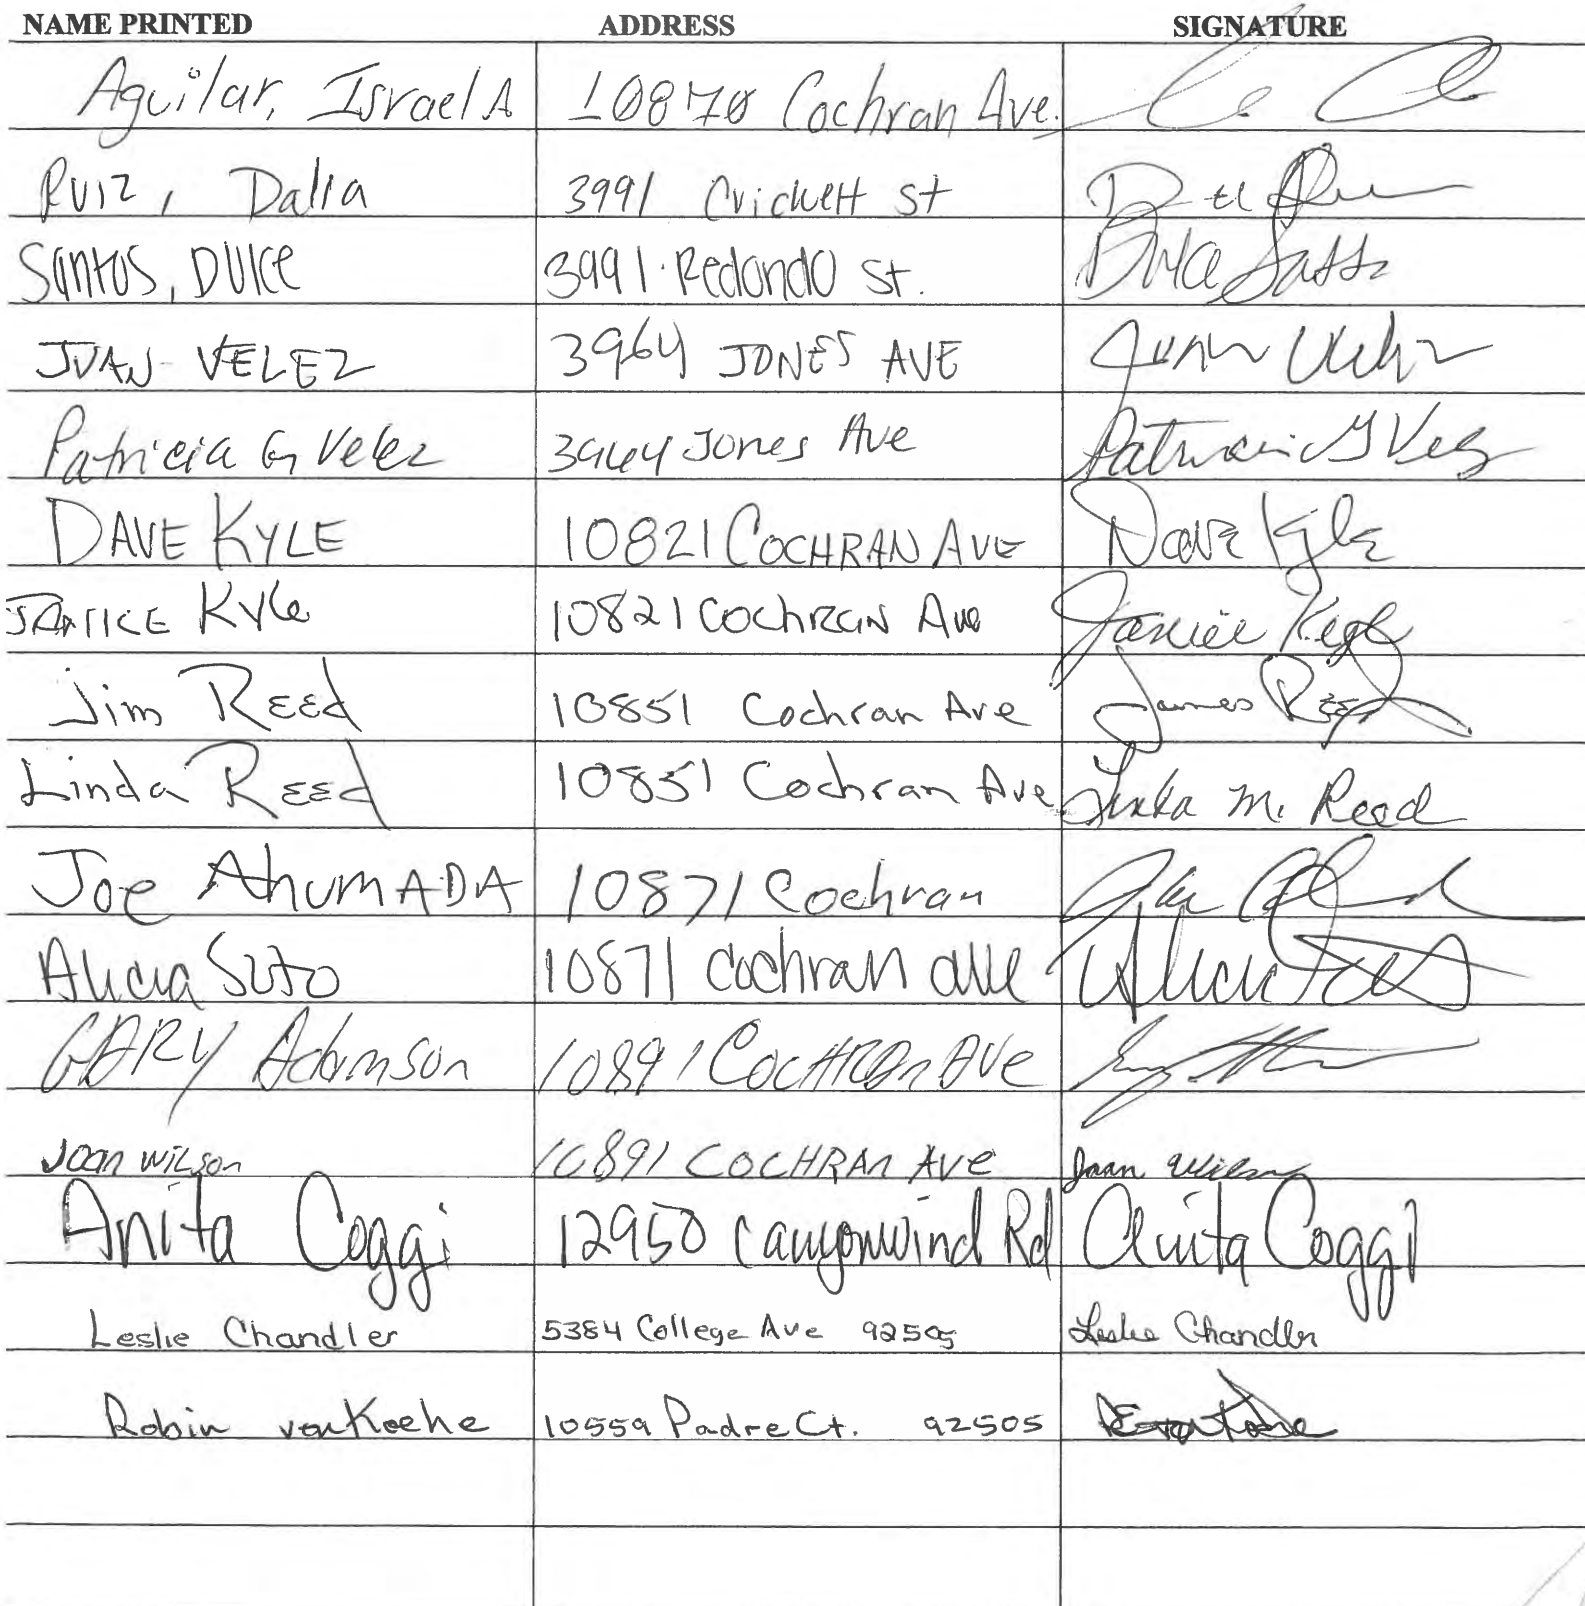 NAME PRINTED ADDRESS SIGNATURE
Aguilar, Israel A 10870 Cochran Ave.
Ruiz, Dalia 3991 Crickett St
Santos, Dulce 3991 Redondo St. Dulce Santos
JUAN VELEZ 3964 JONES AVE Juan Velez
Patricia G Velez 3964 Jones Ave Patricia G Velez
DAVE KYLE 10821 COCHRAN AVE Dave Kyle
JANICE Kyle 10821 Cochran Ave Janice Kyle
Jim Reed 10851 Cochran Ave James Reed
Linda Reed 10851 Cochran Ave Linda M. Reed
Joe AhumADA 10871 Cochran
Alicia Soto 10871 Cochran ave
GARY Adamson 10891 COCHRAn AVe
Joan Wilson 10891 COCHRAn AVe Joan Wilson
Anita Coggi 12950 Canyonwind Rd Anita Coggi
Leslie Chandler 5384 College Ave 92505 Leslie Chandler
Robin vonKoehe 10559 Padre Ct. 92505